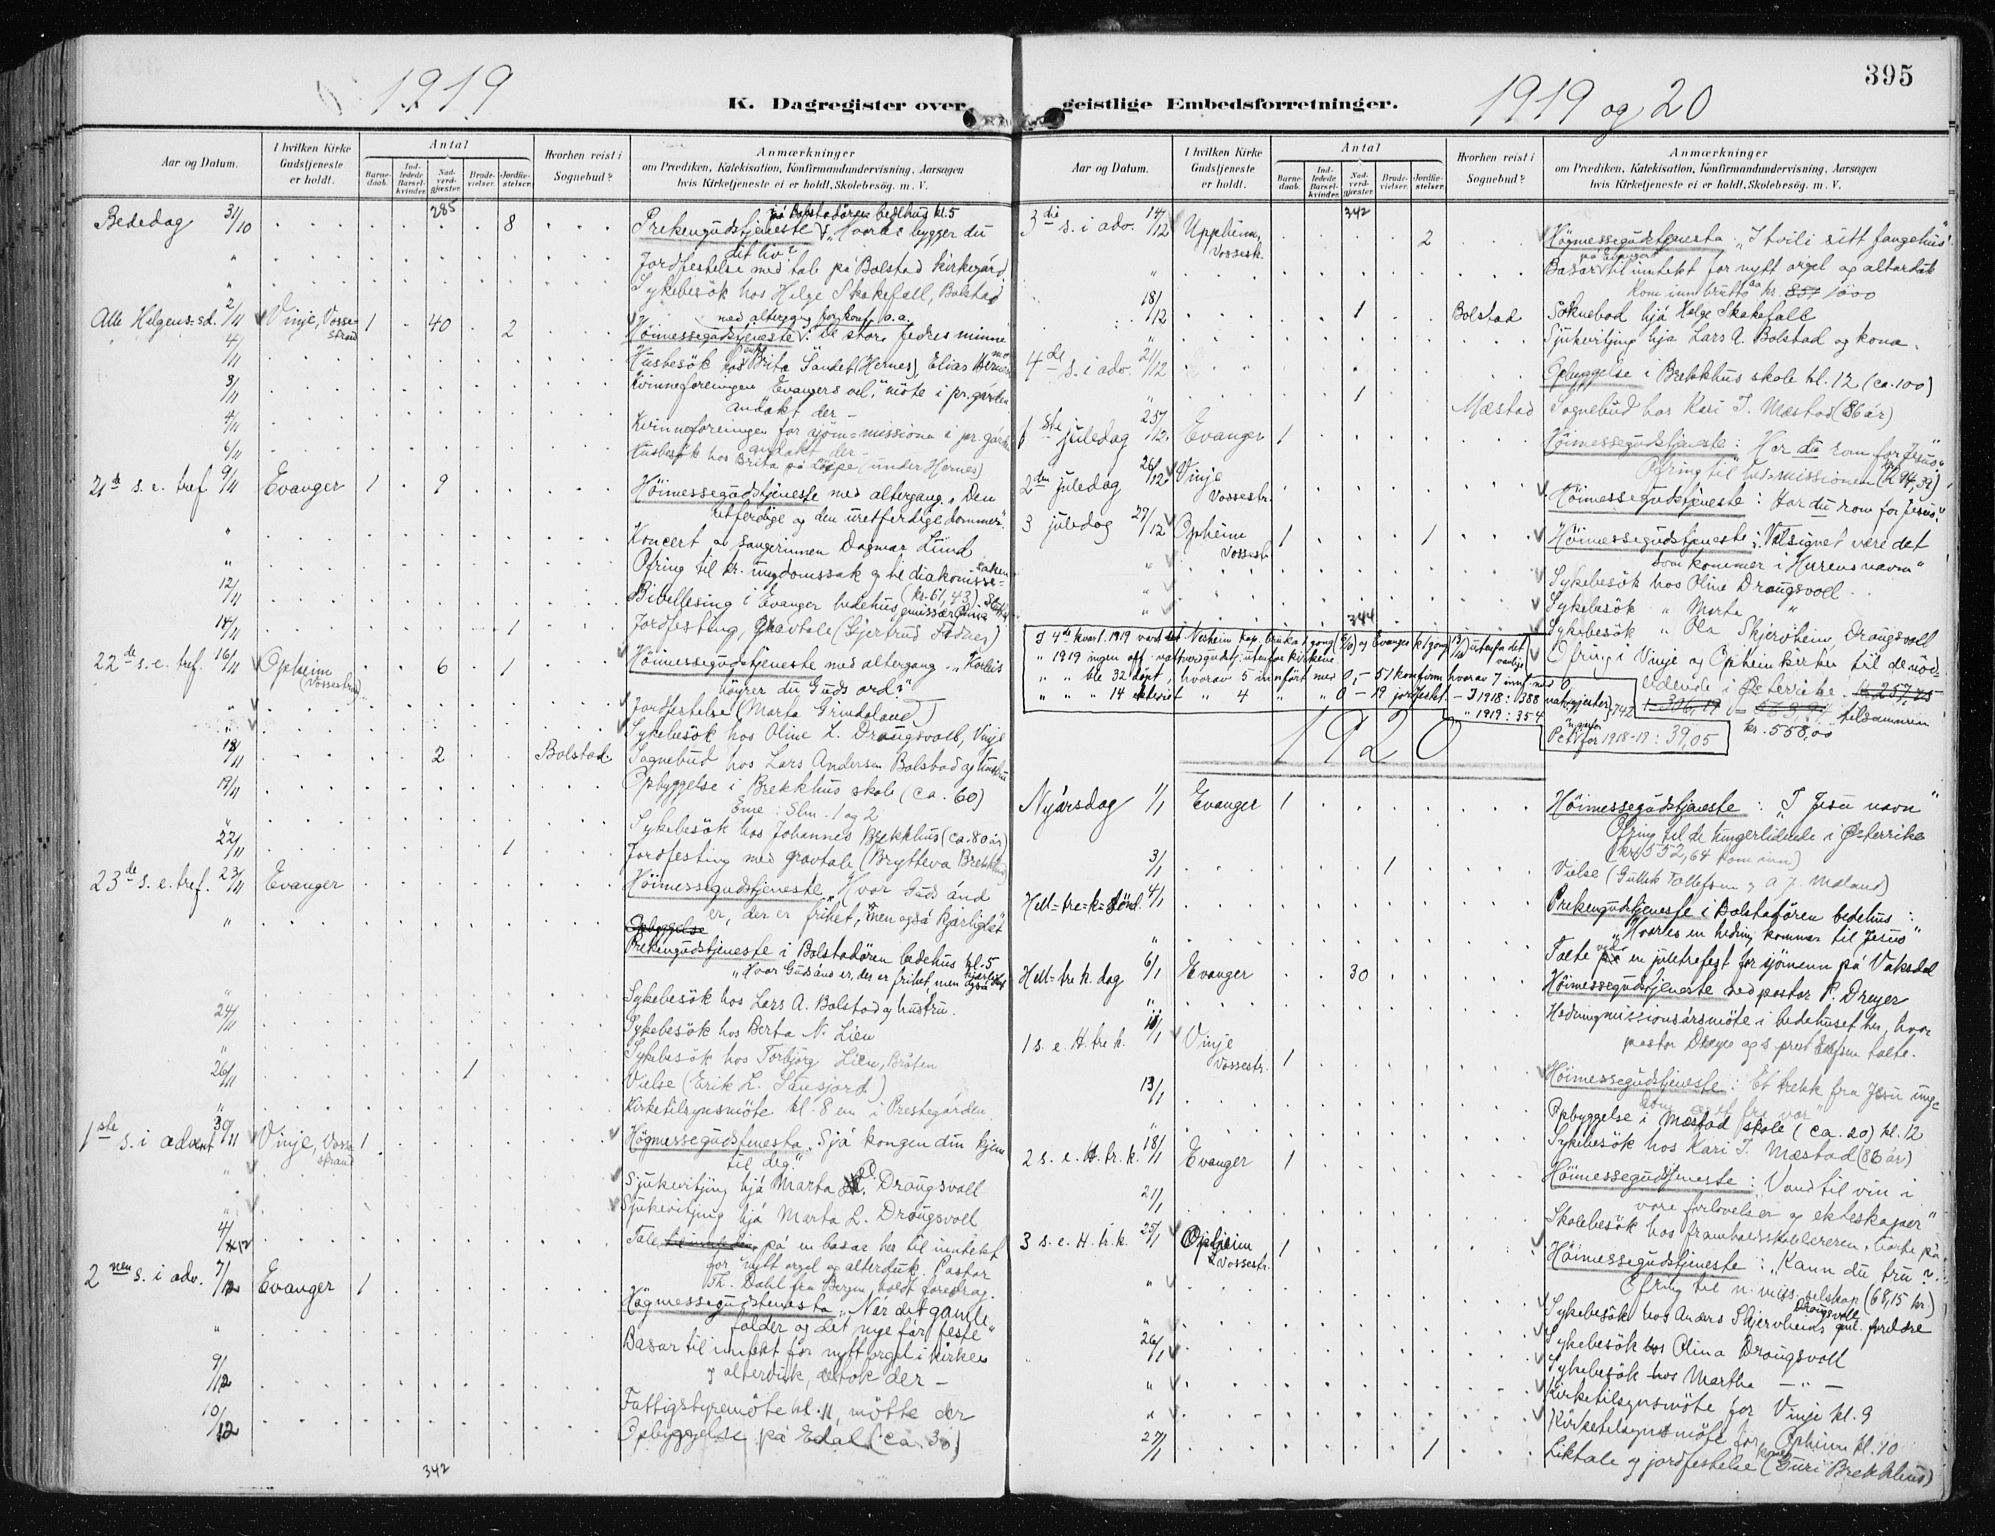 1919
K. Dagregister over
Aar og Datum.
I hvilken Kirke Gudstjeneste er holdt.
Antal
Barnedaab.
Indledede Barselkvinder.
Nadverdgjæster.
Brudevielser.
Jordfæstelser.
Hvorhen reist i Sognebud?
Anmærkninger
om Prædiken, Katekisation, Konfirmandundervisning, Aarsagen
hvis Kirketjeneste ei er holdt, Skolebesøg. m. V.
285
på Bolstadören bedehus kl. 5
Bededag 31/10 8 Prekengudstjeneste: "Hvorav bygger du
dit liv?"
Jordfestelse med tale på Bolstad kirkegård
Sykebesök hos Helge Skakefall, Bolstad
med altergang for konf. o.a.
Alle Helgens-sd. 2/11 Vinje, Vossestrand 1 40 2 Höimessegudstjeneste: De store fedres minne
4/11 Husbesök hos Brita Sandet (Hernes), Elias Hernes
3/11 Kvinneforeningen Evangers vel, möte i pr.gården
andakt der -
4/11 Kvinneforeningen for sjömmissionen i pr.gården
andakt der -
6/11 Husbesök hos Brita på Löppe (under Hernes)
21de s. e. tref 9/11 Evanger 1 9 Höimessegudstjeneste med altergang, "Den
retferdige og den uretferdige dommer".
Koncert av sangerinnen Dagmar Lünd
Ofring til kr. ungdomssak og til diakonisse-
saken
12/11 (kr. 61,43)
Bibellesing i Evanger bedehus
14/11 1 Jordfesting, Gravtale (Gjertrud Fadnes)
22de s. e. tref. 16/11 Opheim (Vossestrand) 6 1 Höimessegudstjeneste med altergang. "Hvorledes
hörer du Guds ord?"
Jordfestelse (Marta Grindaland)
Sykebesök hos Oline L. Draugsvoll, Vinje
18/11 2 Bolstad Sognebud hos Lars Andersen Bolstad og hustru
19/11 Opbyggelse i Brekkhus skole (ca. 60)
Emne: Slm. 1 og 2
Sykebesök hos Johannes Brekkhus (ca. 80 år)
22/11 1 Jordfesting med gravtale (Brytteva Brekkhus)
23de s. e. tref. 23/11 Evanger Höimessegudstjeneste "Hvor Guds ånd
er, der er frihet, men også kjærlighet"
Opbyggelse
Prekengudstjeneste i Bolstadören bedehus kl. 5
"Hvor Guds ånd er, der er frihet men også kjærlighet
Sykebesök hos Lars A. Bolstad og hustru.
24/11 Sykebesök hos Berta N. Lien
Sykebesök hos Torbjörg Lien, Bråten
26/11 1 Vielse (Erik L. Sausjord)
Kirketilsynsmöte kl. 8 em i Prestegården
1ste s. i advent 30/11 Vinje, Vossestrand 1 Högmessegudstenesta. "Sjå kongen din kjem
til deg."
Sjukevitjing hjå Marta O. Draugsvoll
Sjukevitjing hjå Marta L. Draugsvoll
4/12 Tale på en basar her til inntekt
for nytt orgel og alterduk. Pastor
Th. Dahl fra Bergen holdt foredrag.
2nen s. i adv. 7/12 Evanger 1 Högmessegudstenesta "Når det gamle
folder og det nye får feste"
Basar til inntekt for nytt orgel i kirken
9/12 og alterduk, deltok der -
Fattigstyremöte kl. 11, mötte der
10/12 Opbyggelse på Edal (ca. 30)
342
395
1919 og 20
geistlige Embedsforretninger.
Aar og Datum.
I hvilken Kirke Gudstjeneste er holdt.
Antal
Barnedaab.
Indledede Barselkvinder.
Nadverdgjæster.
Brudevielser.
Jordfæstelser.
Hvorhen reist i Sognebud?
Anmærkninger
om Prædiken, Katekisation, Konfirmandundervisning, Aarsagen
hvis Kirketjeneste ei er holdt, Skolebesøg. m. V.
342
3die s. i adv. 14/12 Uppheim, Vossestr. 2 Högmessegudstenesta. "I tvili sitt fangehus"
på Evanger
Basar til inntekt for nytt orgel og alterduk
Kom inn brutto ca kr. 851 1000
18/12 1 Bolstad Soknebod hjå Helge Skakefall
Sjukvitjing hjå Lars A. Bolstad og kona.
4de s. i adv. 21/12 Opbyggelse i Brekkhus skole kl. 12 (ca. 100)
1 Mæstad Sognebud hos Kari I. Mæstad (86 år)
1ste juledag 25/12 Evanger 1 Höimessegudstjeneste: "Har du rom for Jesus"
Ofring til hedn.missionen (kr. 94,32)
2den juledag 26/12 Vinje Vossestr. Höimessegudstjeneste: Har du rom for Jesus?"
3 juledag 27/12 Opheim Vossestr. 1 1 Höimessegudstjeneste: "Velsignet være det
som kommer i Herrens navn"
Sykebesök hos Oline Draugsvoll
Sykebesök " Marta "
344
Sykebesök " Ola Skjervheim, Draugsvoll
Ofring i Vinje og Opheim kirker til de nöd-
lidende i Østerrike kr 257,45
1 306,19 563,91 tilsammen
kr. 558,00
I 4de kvart. 1919 vard det Nesheim kap. bruka 1 gong (5/10) og Evanger 1 gong (13/10) utanfor det vanlege
" 1919 ingen off. nattverdgudstj. utenfor kirkene
" " ble 32 döpt, hvorav 5 innfört med 0, - 51 konfirm. hvorav 7 innf. med 0
" " " 14 ektevied " 4 " " 0 - 19 jordfestet. - I 1918: 388 nattv.gjester
" 1919: 354 } 742
Pct. for 1918-19: 39,05
1920
Nyårsdag 1/1 Evanger 1 Höimessegudstjeneste: "I Jesu navn"
Ofring til de hungerlidende i Østerrike
(kr. 552,64 kom inn)
3/1 1 Vielse (Gullik Tollefsen og A. J. Mæland)
Hell-tre-k-sönd. 4/1 Prekengudstjeneste i Bolstadören bedehus:
"Hvorles en hedning kommer til Jesus"
Talte ved en juletrefest for sjömenn på Vaksdal
Hell. tre k. dag 6/1 Evanger 30 Höimessegudstjeneste ved pastor P. Dreyer
Hedningmissionsårsmöte i bedehuset her, hvor
pastor Dreyer og s. prest talte.
1 s. e. H. tre k. 11/1 Vinje Vossestr. 1 Höimessegudstjeneste: Et trekk fra Jesu ung-
dom, og et fra vor"
13/1 Opbyggelse i Mæstad skole (ca. 20) kl. 12
Sykebesök hos Kari I. Mæstad (86 år)
2 s. e. H. tr. k. 18/1 Evanger 1 Höimessegudstjeneste: "Vand til vin i
vore forlovelser og ekteskaper"
21/1 Skolebesök hos framhaldsskolelereren, talte på
3 s. e. H. tr. k. 25/1 Opheim Vossestr. 1 Höimessegudstjeneste: "Kann du tru?"
Ofring til n. miss. selskap (68,15 kr.)
Sykebesök hos Anders Skjervheims gml. foreldre
Draugsvoll
Sykebesök hos Olina Draugsvoll
26/1 Sykebesök hos Martha - " -
Kirketilsynsmöte for Vinje kl. 9
Kirketilsynsmöte for Opheim kl. 10
27/1 1 Liktale og jordfestelse (konen Guri Brekkhus)